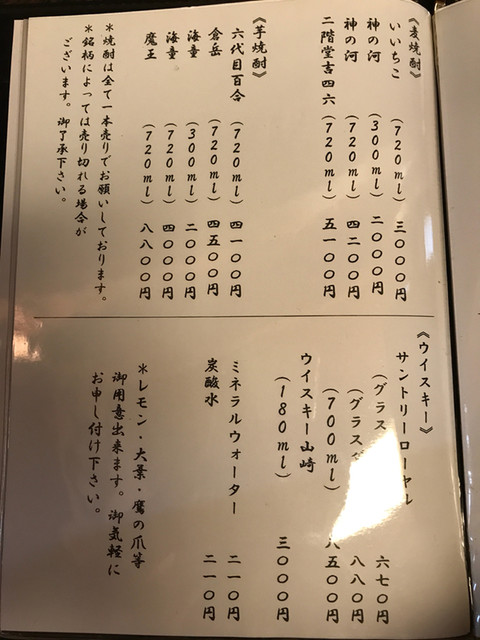 《麦焼酎》
いいちこ (720ml) 三〇〇〇円
神の河 (300ml) 二〇〇〇円
神の河 (720ml) 四二〇〇円
二階堂吉四六 (720ml) 五一〇〇円
《芋焼酎》
六代目百合 (720ml) 四一〇〇円
倉岳 (720ml) 四五〇〇円
海童 (300ml) 二〇〇〇円
海童 (720ml) 四〇〇〇円
魔王 (720ml) 八八〇〇円
*焼酎は全て一本売りでお願いしております。
*銘柄によっては売り切れる場合が
ございます。御了承下さい。
《ウイスキー》
サントリーローヤル
(グラス 六七〇円
(グラス 八八〇円
(700ml) 八五〇〇円
ウイスキー山崎
(180ml) 三〇〇〇円
ミネラルウォーター 二一〇円
炭酸水 二一〇円
*レモン・大葉・鷹の爪等
御用意出来ます。御気軽に
お申し付け下さい。